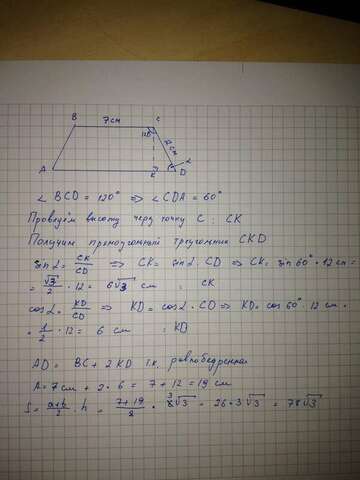 B 7см C
120°
12 см
α
A K D
∠ BCD = 120° ⇒ ∠ CDA = 60°
Проведём высоту через точку C : CK
Получим прямоугольный треугольник CKD
sin α = CK/CD ⇒ CK = sin α · CD ⇒ CK = sin 60° · 12 см =
= √3/2 · 12 = 6√3 см : CK
cos α = KD/CD ⇒ KD = cos α · CD ⇒ KD = cos 60° · 12 см =
= 1/2 · 12 = 6 см : KD
AD = BC + 2 KD т.к. равнобедренная
A = 7 см + 2 · 6 = 7 + 12 = 19 см
S = a+b/2 · h = 7+19/2 · √3 = 26 · 3√3 = 78√3